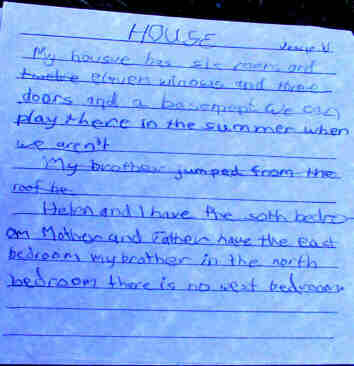 HOUSE
My housve has six rooms and
twelve eleven winows and three
doors and a basement we can
play there in the summer when
we aren't
My brother jumped from the
roof he
Helen and I have the soth bedro
om Mother and Father have the east
bedroom my brother in the north
bedroom there is no west bedroom